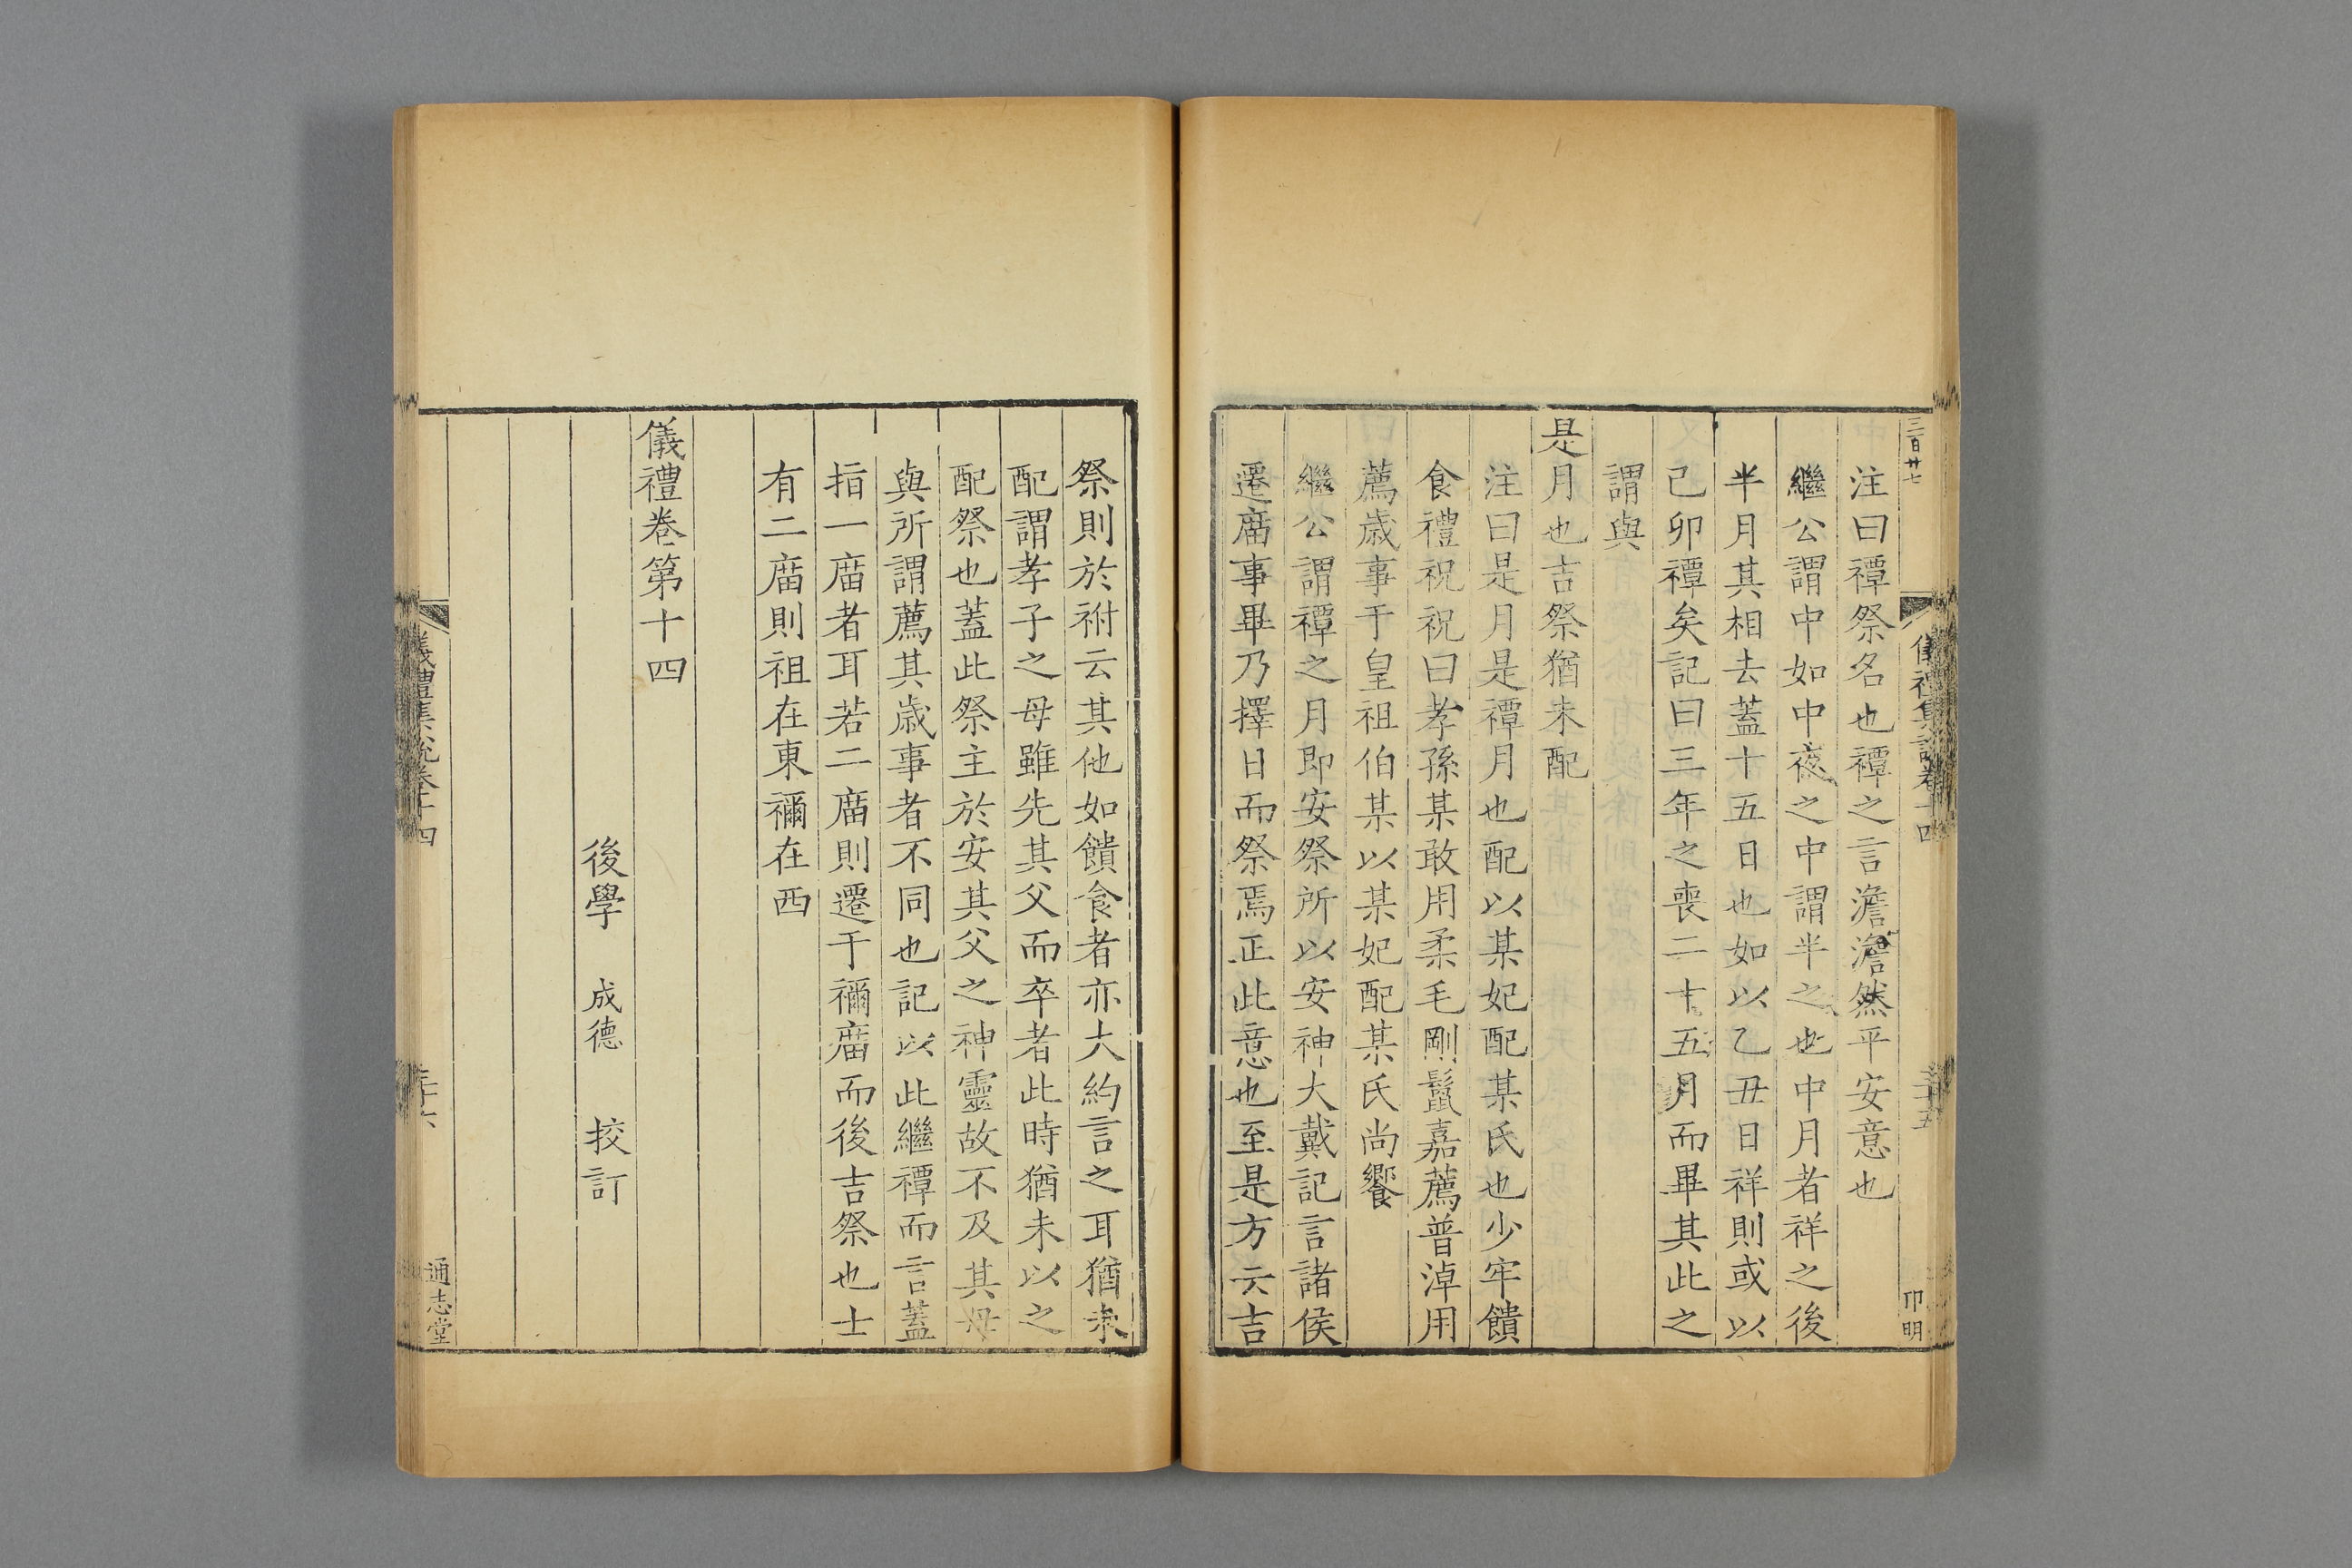 三百廿七
儀禮集說卷十四
三十五
卬明
注曰禫祭名也禫之言澹澹然平安意也
繼公謂中如中夜之中謂半之也中月者祥之後
半月其相去蓋十五日也如以乙丑日祥則或以
己卯禫矣記曰三年之喪二十五月而畢其此之
謂與
是月也吉祭猶未配
注曰是月是禫月也配以某妃配某氏也少牢饋
食禮祝祝曰孝孫某敢用柔毛剛鬣嘉薦普淖用
薦歲事于皇祖伯某以某妃配某氏尚饗
繼公謂禫之月即安祭所以安神大戴記言諸侯
遷庿事畢乃擇日而祭焉正此意也至是方云吉
祭則於祔云其他如饋食者亦大約言之耳猶未
配謂孝子之母雖先其父而卒者此時猶未以之
配祭也蓋此祭主於安其父之神靈故不及其母
與所謂薦其歲事者不同也記以此繼禫而言蓋
指一庿者耳若二庿則遷于禰庿而後吉祭也士
有二庿則祖在東禰在西
儀禮卷第十四
後學 成德 挍訂
儀禮集說卷十四
三十六
通志堂